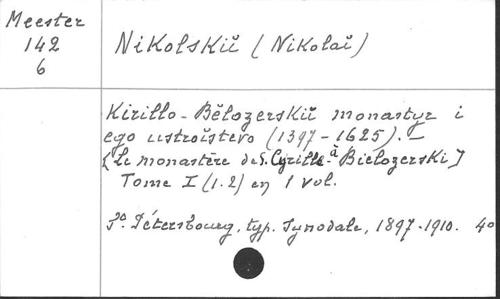 Meester
142
6
Nikolskiĭ (Nikolaĭ)
Kirillo-Bělozerskiĭ monastyr i
ego ustroĭstvo (1397-1625). -
[Le monastère de S. Cyrille à Bielozerski]
Tome I (1.2) en 1 vol.
Sº. Pétersbourg, typ. Synodale, 1897-1910. 4º